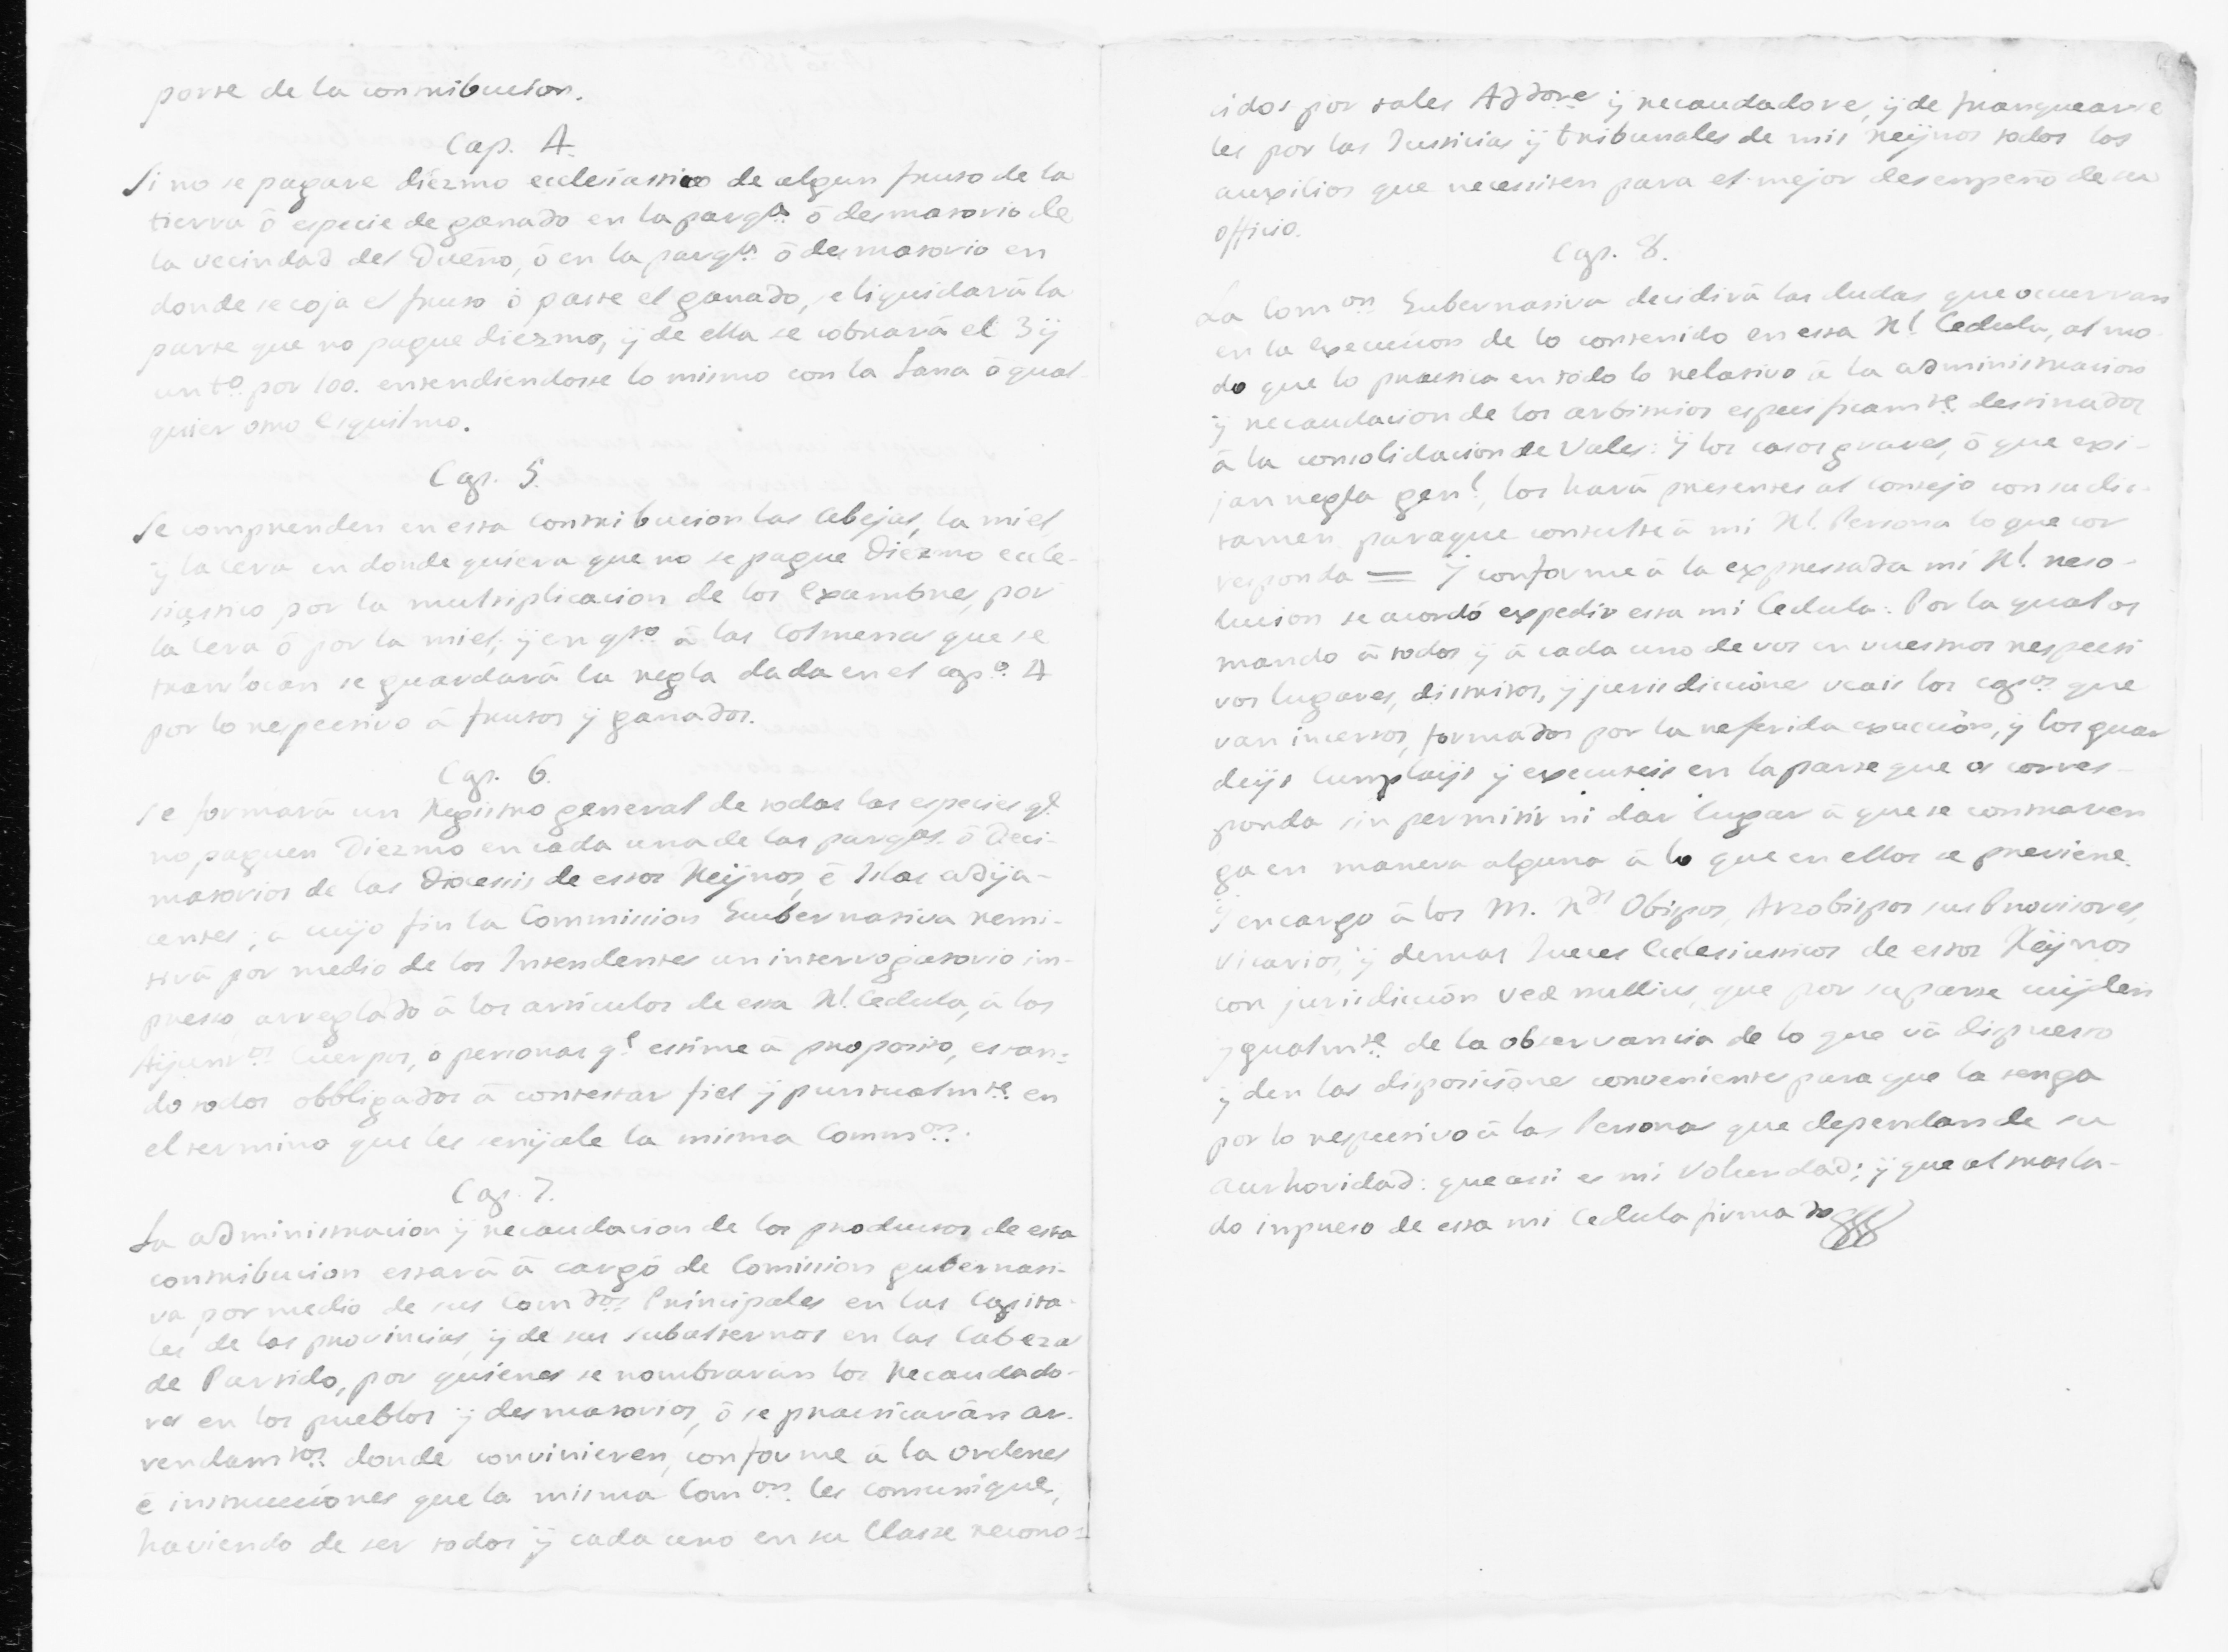 parte de la contribucion.
Cap. 4.
Si no se pagare diézmo ecclesiastico de algun fruto de la
tierra ó especie de ganado en la parqª. ó desmatorio de
la vecindad del Dueño, ó en la parqª. ó desmatorio en
donde se coja el fruto ó paste el ganado, se liquidará la
parte que no pague diezmo, ÿ de ella se cobrará el 3 ÿ
un tº. por 100. entendiendosse lo mismo con la Lana ó qual-
quier otro Esquilmo.
Cap. 5.
Se comprenden en esta Contribucion las Abejas, la miel,
ÿ la Cera en donde quiera que no se pague Diezmo eccle-
siastico por la multiplicacion de los Exambres, por
la Cera ó por la miel; ÿ en qto. á las Colmenas que se
translocan se guardará la regla dada en el capº. 4
por lo respectivo á frutos ÿ ganados.
Cap. 6.
Se formará un Registro general de todas las especies qe.
no paguen Diezmo en cada una de las parqas. ó Deci-
matorios de las Diocesis de estos Reÿnos, é Islas adÿa-
centes; á cuÿo fin la Commission Gubernativa remi-
tirá por medio de los Intendentes un interrogatorio im-
presso, arreglado á los articulos de esta Rl. Cedula, á los
Aÿuntos. Cuerpos, ó personas qe. estime á proposito, estan-
do todos obbligados á contestar fiel ÿ puntualmte. en
el termino que les señale la misma Common.
Cap. 7.
La administracion ÿ recaudacion de los productos de esta
contribucion estará á cargo de Comission gubernati-
va por medio de sus Comdos. Principales en las Capita-
les de las provincias, ÿ de sus subalternos en las Cabeza
de Partido, por quienes se nombraran los Recaudado-
res en los pueblos ÿ desmatorios, ó se practicarán ar-
rendamtos. donde convinieren, conforme á la ordenes
é instrucciones que la misma Comon. les comunique,
haviendo de ser todos ÿ cada uno en su Classe recono-
cidos por tales Addore ÿ recaudadore, ÿ de franquearse
les por las Justicias ÿ tribunales de mis reÿnos todos los
auxilios que necessiten para el mejor desempeño de su
officio.
Cap. 8.
La Comon. Gubernativa decidirá las dudas que ocurran
en la execucion de lo contenido en esta Rl. Cedula, al mo-
do que lo practica en todo lo relativo á la administracion
ÿ recaudacion de los arbitrios especificamte. destinados
á la consolidacion de Vales: ÿ los casos graves, ó que exi-
jan regla genl., los hará presentes al consejo con su dic-
tamen paraque consulte á mi Rl. Persona lo que cor
responda = Y conforme á la expressada mi Rl. reso-
lucion se acordó expedir esta mi Cedula: Por la qual os
mando á todos ÿ á cada uno de vos en vuestros respecti
vos lugares, distritos, ÿ jurisdiccione veais los capos que
van incertos, formados por la referida exaccion, ÿ los guar
deÿs Cumplaÿs ÿ executeis en la parte que os corres-
ponda sin permitir ni dar lugar á que se contraven
ga en manera alguna á lo que en ellos se previene.
Y encargo á los M. Rds Obispos, Arzobispos sus Provisores,
Vicarios, ÿ demas Jueces Ecclesiasticos de estos Reÿnos
con jurisdicción veré nullius, que por su parte cuÿden
ygualmte. de la observancia de lo que vá dispuesto
ÿ den las disposicione conveniente para que la tenga
por lo respectivo á las Persona que dependan de su
authoridad: que assi es mi Voluntad; ÿ que al trasla-
do inpreso de esta mi Cedula firmado